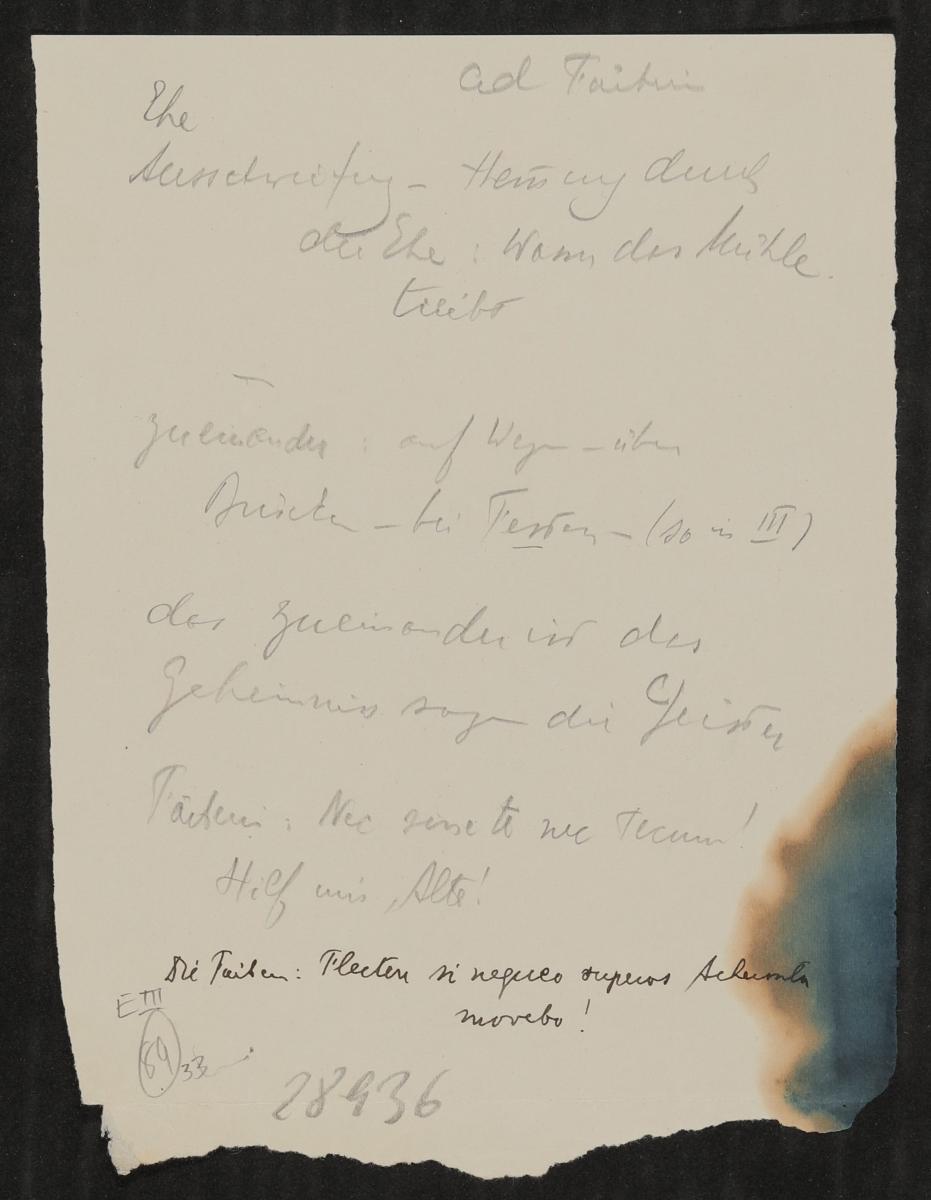 ad Färberin
Ehe
Ausschweifung – Hem̄ung durch
die Ehe : das Mühle
treibt
zueinander : auf Wegen – über
Brücken – bei Festen – (so in III)
das Zueinander ist das
Geheimniss sagen die Geister
Färberin : Nec sine te nec tecum!
Hilf mir, Alte!
Die Färberin: Flectere si nequeo superos Acheronta
movebo!
E III
33
28936